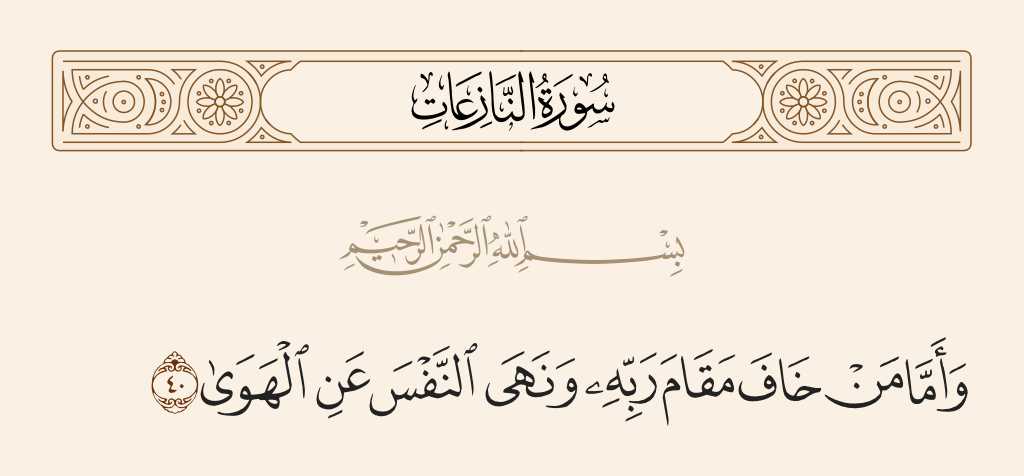 سُورَةُ النَّازِعَاتِ
بِسْمِ ٱللَّهِ ٱلرَّحْمَٰنِ ٱلرَّحِيمِ
وَأَمَّا مَنْ خَافَ مَقَامَ رَبِّهِۦ وَنَهَى ٱلنَّفْسَ عَنِ ٱلْهَوَىٰ ٤٠